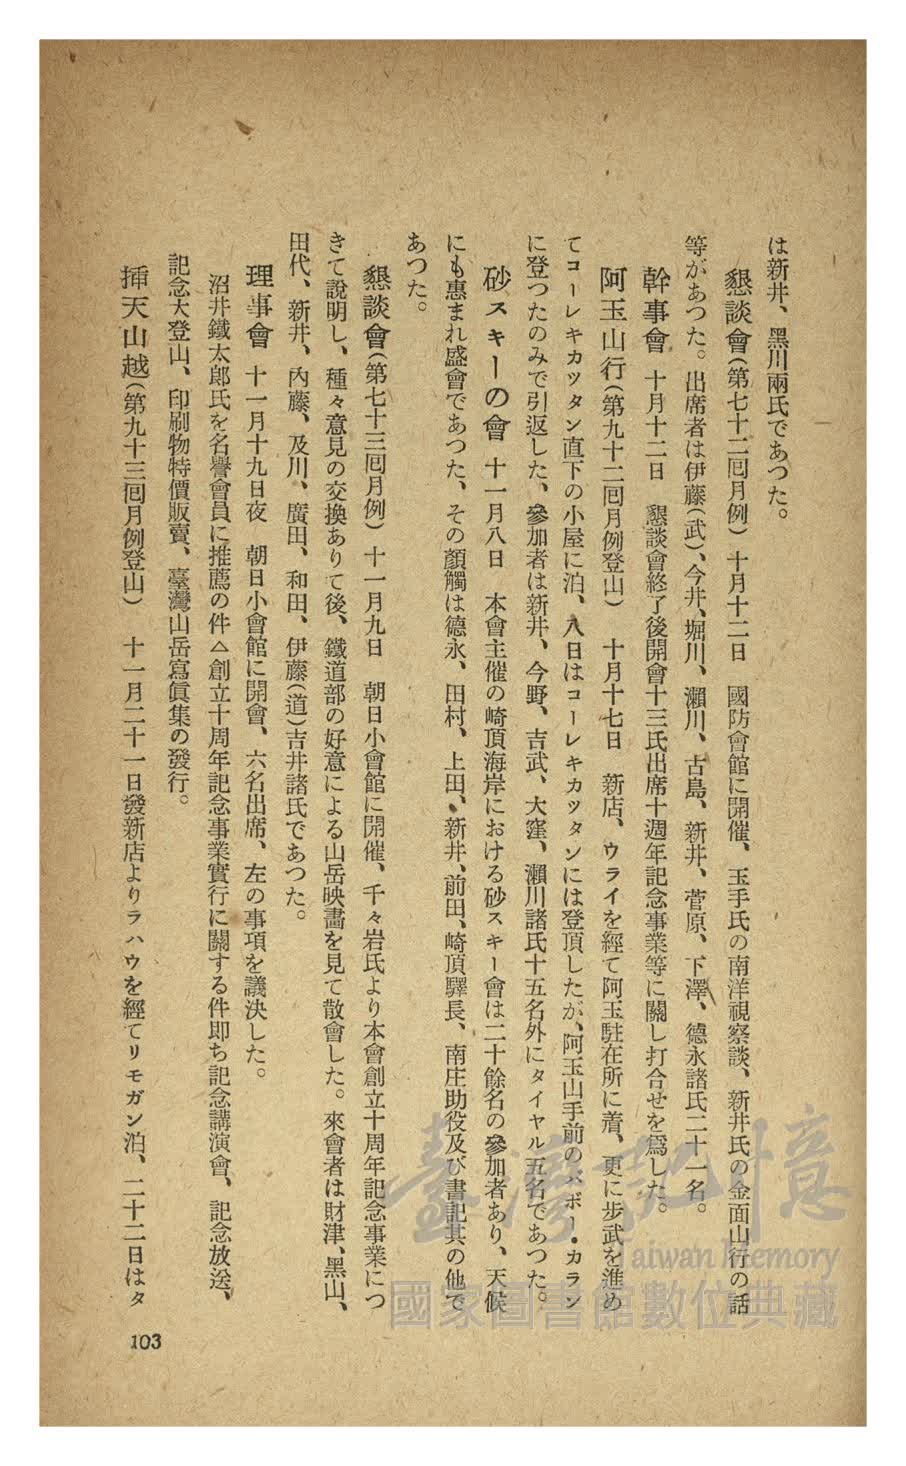 は新井、黑川兩氏であつた。
懇談會(第七十二囘月例) 十月十二日 國防會館に開催、玉手氏の南洋視察談、新井氏の金面山行の話
等があつた。出席者は伊藤(武)、今井、堀川、瀨川、古島、新井、菅原、下澤、德永諸氏二十一名。
幹事會 十月十二日 懇談會終了後開會十三氏出席十週年記念事業等に關し打合せを爲した。
阿玉山行(第九十二囘月例登山) 十月十七日 新店、ウライを經て阿玉駐在所に着、更に步武を進め
てコーレキカツタン直下の小屋に泊、八日はコーレキカツタンには登頂したが、阿玉山手前のバボー・カラン
に登つたのみで引返した、參加者は新井、今野、吉武、大窪、瀨川諸氏十五名外にタイヤル五名であつた。
砂スキーの會 十一月八日 本會主催の崎頂海岸における砂スキー會は二十餘名の參加者あり、天候
にも惠まれ盛會であつた、その顏觸は德永、田村、上田、新井、前田、崎頂驛長、南庄助役及び書記其の他で
あつた。
懇談會(第七十三囘月例) 十一月九日 朝日小會館に開催、千々岩氏より本會創立十周年記念事業につ
きて說明し、種々意見の交換ありて後、鐵道部の好意による山岳映畫を見て散會した。來會者は財津、黑山、
田代、新井、內藤、及川、廣田、和田、伊藤(道)吉井諸氏であつた。
理事會 十一月十九日夜 朝日小會館に開會、六名出席、左の事項を議決した。
沼井鐵太郞氏を名譽會員に推薦の件△創立十周年記念事業實行に關する件卽ち記念講演會、記念放送、
記念大登山、印刷物特價販賣、臺灣山岳寫眞集の發行。
挿天山越(第九十三囘月例登山) 十一月二十一日發新店よりラハウを經てリモガン泊、二十二日はタ
103
臺灣記憶
Taiwan Memory
國家圖書館數位典藏